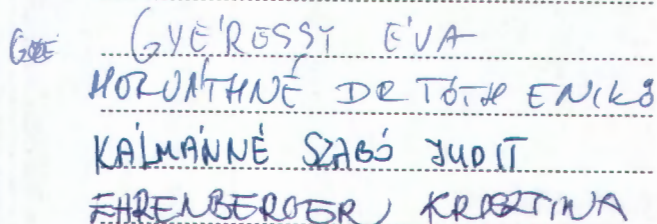 GYÉRESSY ÉVA
HORVÁTHNÉ DR TÓTH ENIKŐ
KÁLMÁNNÉ SZABÓ JUDIT
EHRENBERGER KRISZTINA